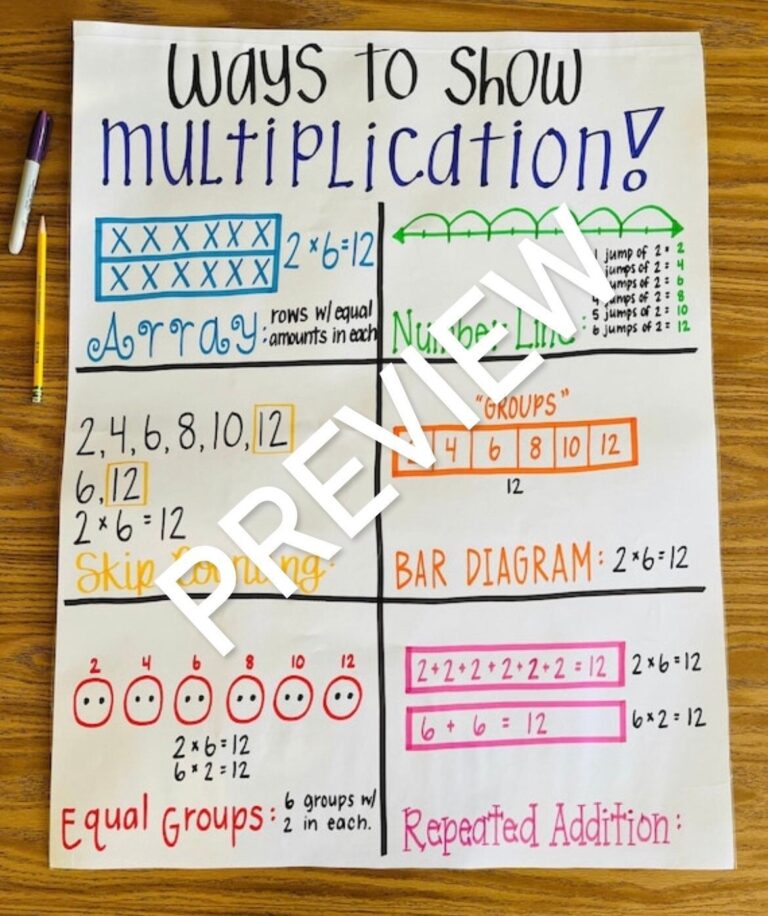 Ways to Show
Multiplication!
X X X X X X
X X X X X X
2×6=12
Array: rows w/ equal
amounts in each
jump of 2= 2
jumps of 2= 4
jumps of 2= 6
jumps of 2= 8
5 jumps of 2= 10
6 jumps of 2= 12
Number Line:
2,4,6,8,10,12
6,12
2×6=12
Skip Counting:
"GROUPS"
4 6 8 10 12
12
BAR DIAGRAM: 2×6=12
2 4 6 8 10 12
2×6=12
6×2=12
Equal Groups: 6 groups w/
2 in each.
2+2+2+2+2+2=12 2×6=12
6+6=12 6×2=12
Repeated Addition:
PREVIEW